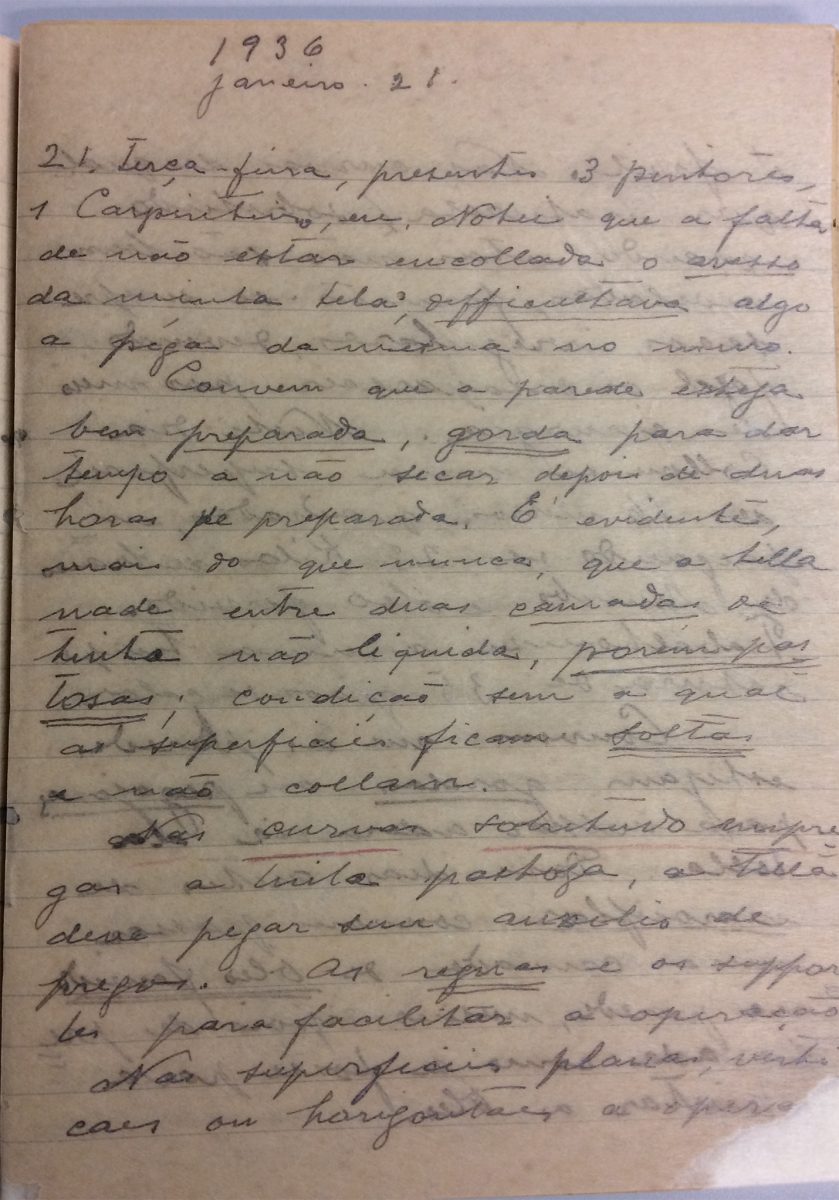 1936
janeiro. 21.
21. terça-feira, presentes 3 pintores,
1 Carpinteiro, eu. Notei que a falta
de não estar encollada o avesso
da minha tela, difficultava algo
a péga da mesma no muro.
Convem que a parede esteja
bem preparada, gorda para dar
tempo a não secar depois de duas
horas de preparada. É evidente,
mais do que nunca, que a tella
nade entre duas camadas de
tinta não liquida, porem pas
tosas; condição sem a qual
as superficies ficam soltas
e não collam.
Nas curvas sobretudo empre
gar a tinta pastosa, a tella
deve pegar sem auxilio de
pregos. As reguas e os suppor
tes para facilitar a operação
Nas superficies planas, verti
caes ou horizontaes a opera